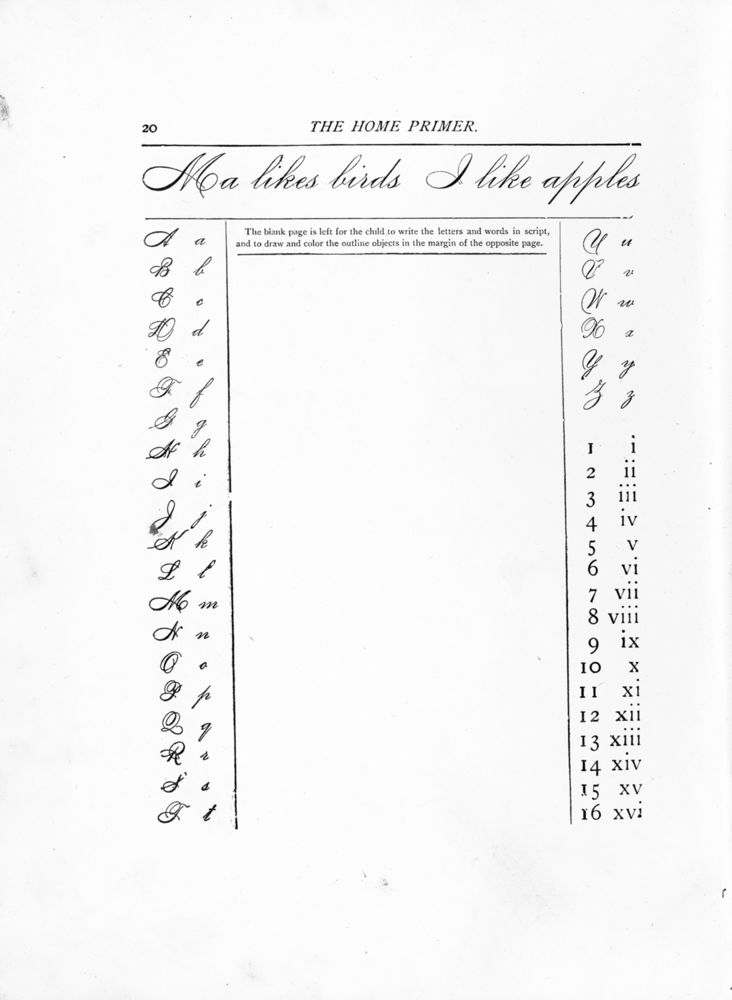 20
THE HOME PRIMER.
Ma likes birds I like apples
The blank page is left for the child to write the letters and words in script,
and to draw and color the outline objects in the margin of the opposite page.
A a
B b
C c
D d
E e
F f
G g
H h
I i
J j
K k
L l
M m
N n
O o
P p
Q q
R r
S s
T t
U u
V v
W w
X x
Y y
Z z
1 i
2 ii
3 iii
4 iv
5 v
6 vi
7 vii
8 viii
9 ix
10 x
11 xi
12 xii
13 xiii
14 xiv
15 xv
16 xvi